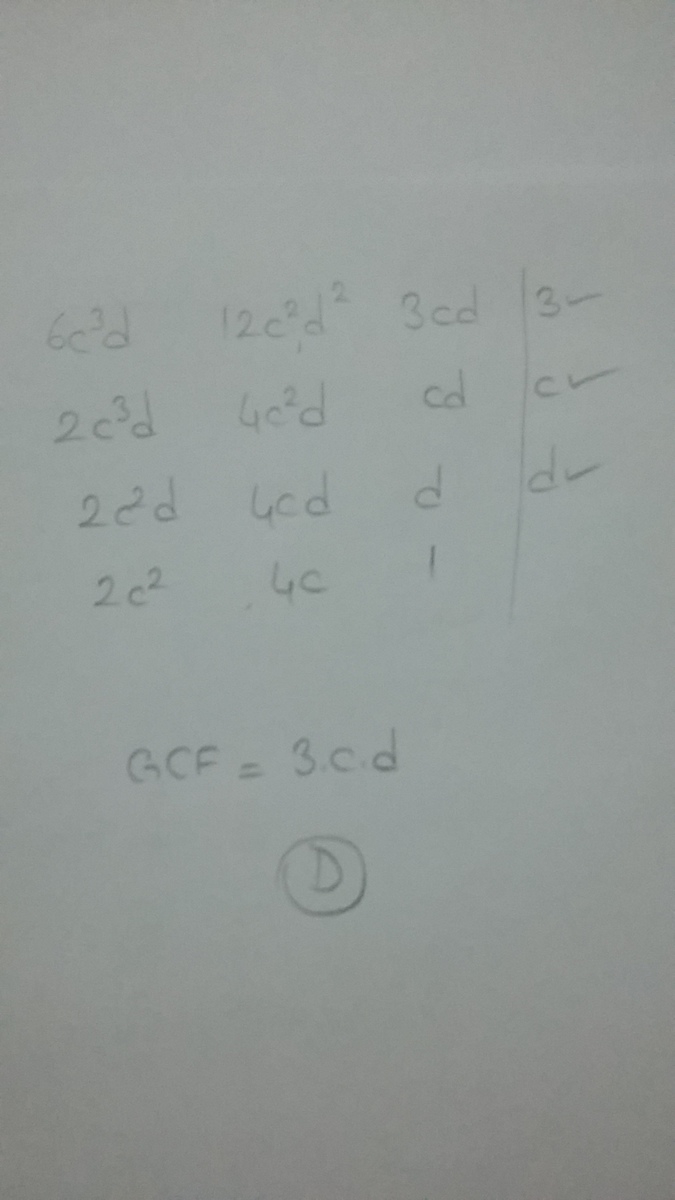 6c³d 12c²d² 3cd | 3 ✓
2c³d 4c²d cd | c ✓
2c²d 4cd d | d ✓
2c² 4c 1
GCF = 3.c.d
D